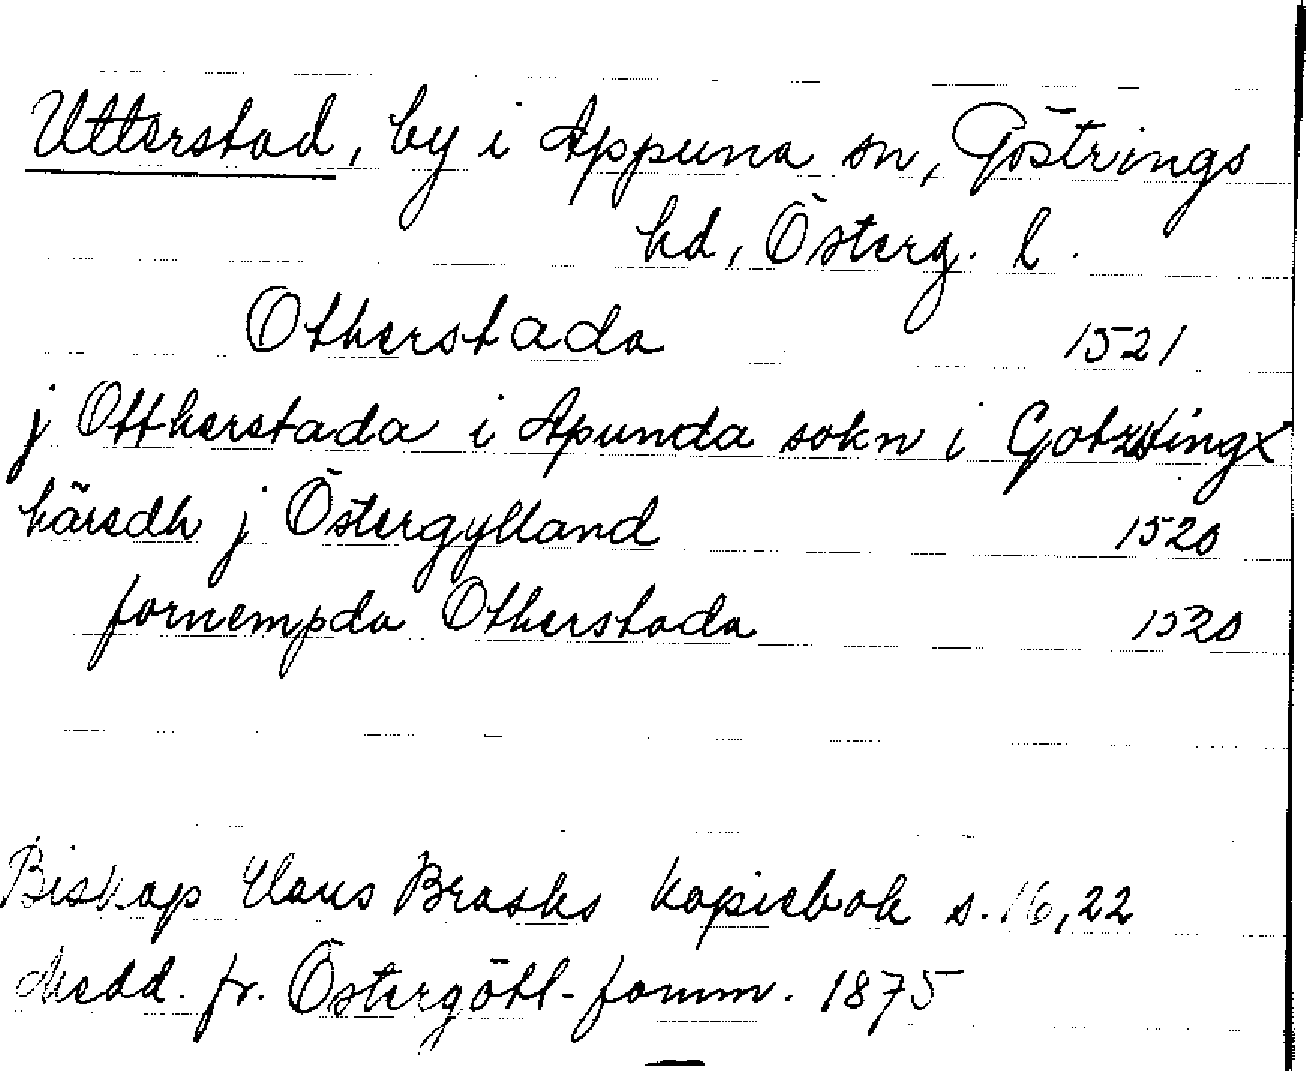 Utterstad, by i Appuna sn, Göstrings
hd, Österg. l.
Otherstada 1521
j Ottherstada i Apunda sokn i
häredh j Östergylland 1520
fornempda Otherstada 1520
Biskop Hans Brasks kopiebok s. 16, 22
Medd. fr. Östergötl. fornm. 1875